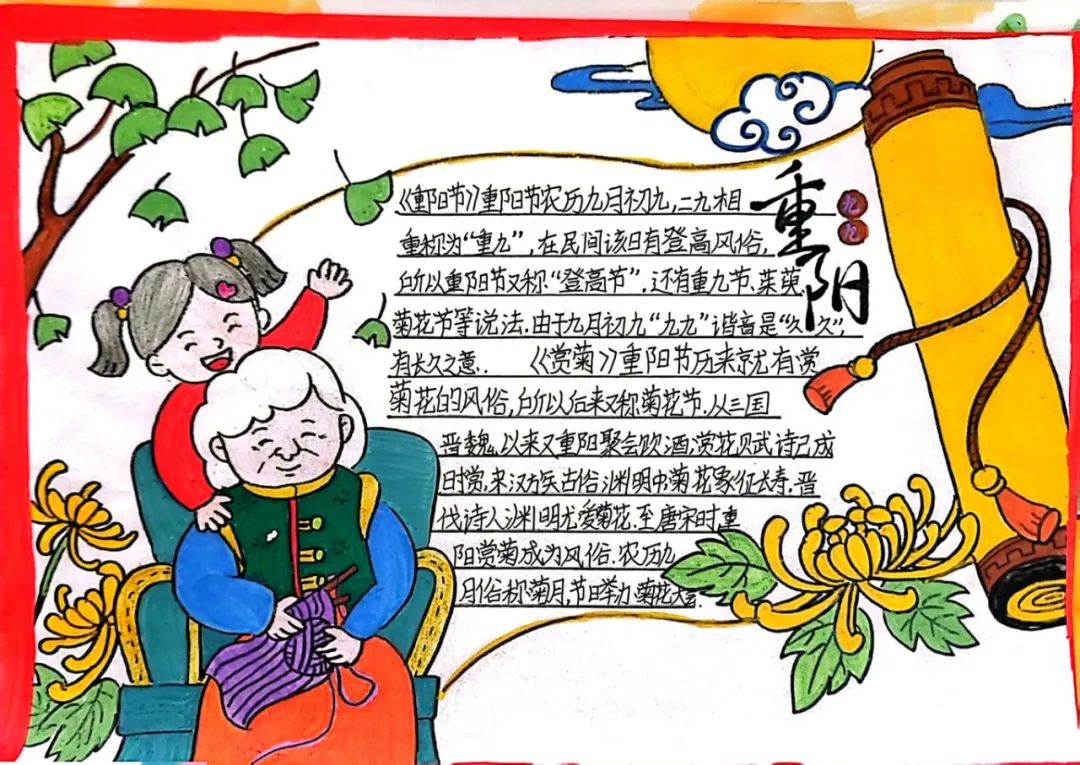 重阳
九九
《重阳节》重阳节农历九月初九,二九相
重称为“重九”,在民间该日有登高风俗,
所以重阳节又称“登高节”.还有重九节、茱萸
菊花节等说法.由于九月初九“九九”谐音是“久久”,
有长久之意. 《赏菊》重阳节历来就有赏
菊花的风俗,所以后来又称菊花节.从三国
晋魏,以来又重阳聚会饮酒,赏花贝武诗已成
时赏,来汉族古俗渊明中菊花象征长寿.晋
代诗人渊明尤爱菊花.至唐宋时重
阳赏菊成为风俗.农历九
月俗称菊月,节日举办菊花大会.